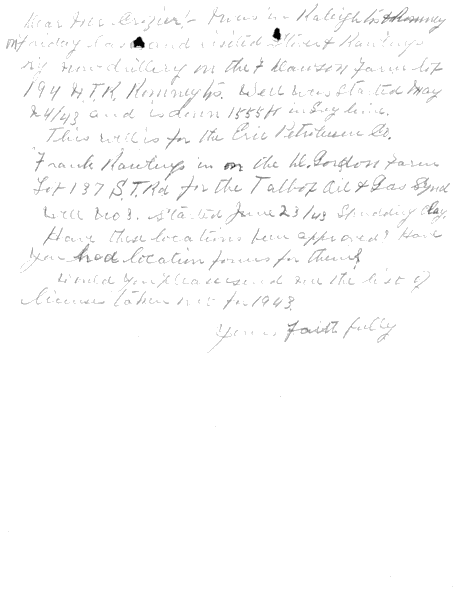 Dear Mr. Crozier:- I was in Raleigh & Romney
on Friday last and visited Oliver Rawlings
rig now drilling on the F Dawson Farm Lot
194 N.T.R. Romney Tp. Well was started May
24/43 and is down 1555 ft in Grey lime.
This well is for the Erie Petroleum Co.
Frank Rawlings in on the D. Gordon Farm
Lot 137 S.T.Rd for the Talbot Oil & Gas Synd
Well No 3. started June 23/43 Spudding Clay.
Have these locations been approved? Have
you had location forms for them?
Would you please send me the list of
licenses taken out for 1943.
Yours faithfully